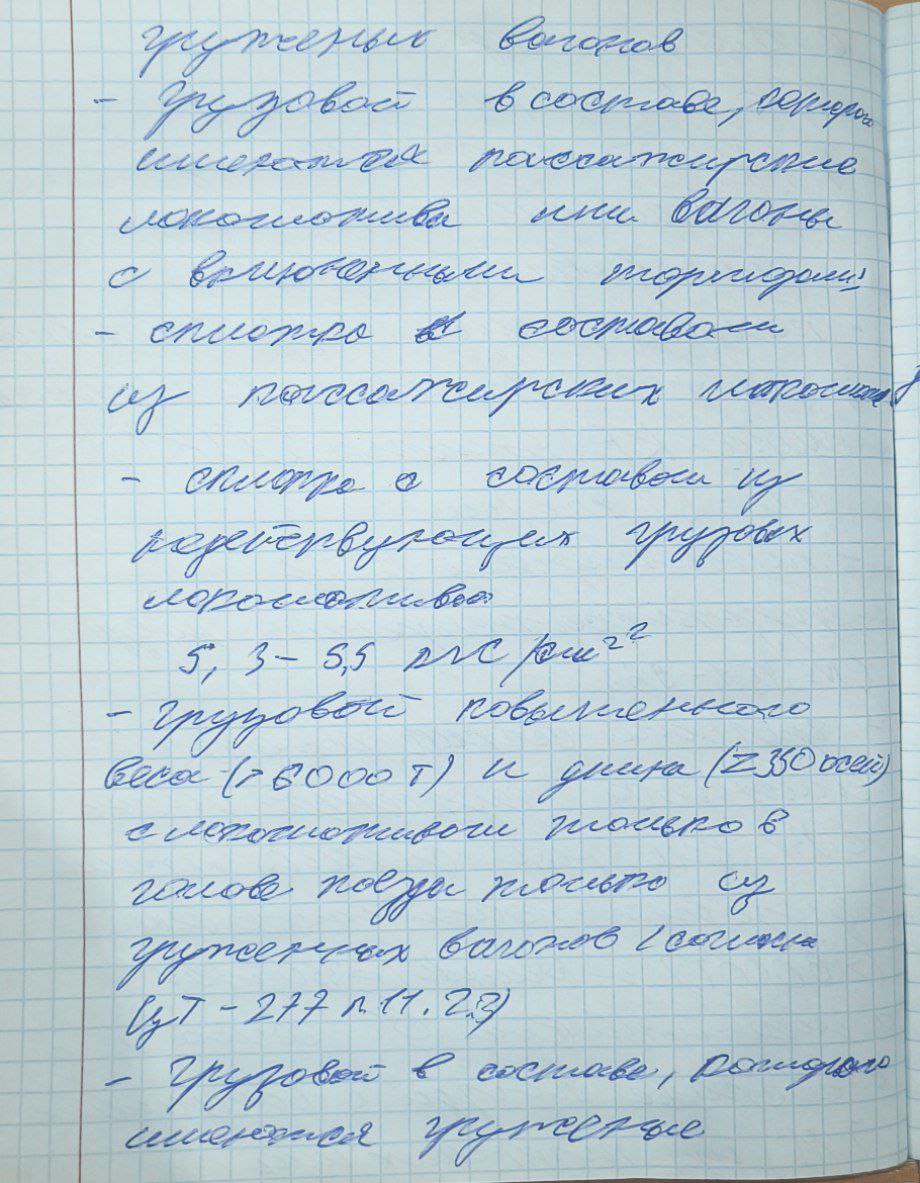 груженых вагонов
- грузовой в составе, которого
имеются пассажирские
локомотива или вагоны
с включенными тормозами
- сплотка с составом
из пассажирских локомотивов
- сплотка с составом из
недействующих грузовых
локомотивов
5,3-5,5 кгс/см²
- грузовой повышенного
веса (>6000т) и длина (≥350 осей)
с локомотивом только в
голове поезда только из
груженных вагонов (согласно
ЦТ-277 п.11.2.3)
- Грузовой в составе, которого
имеются груженые